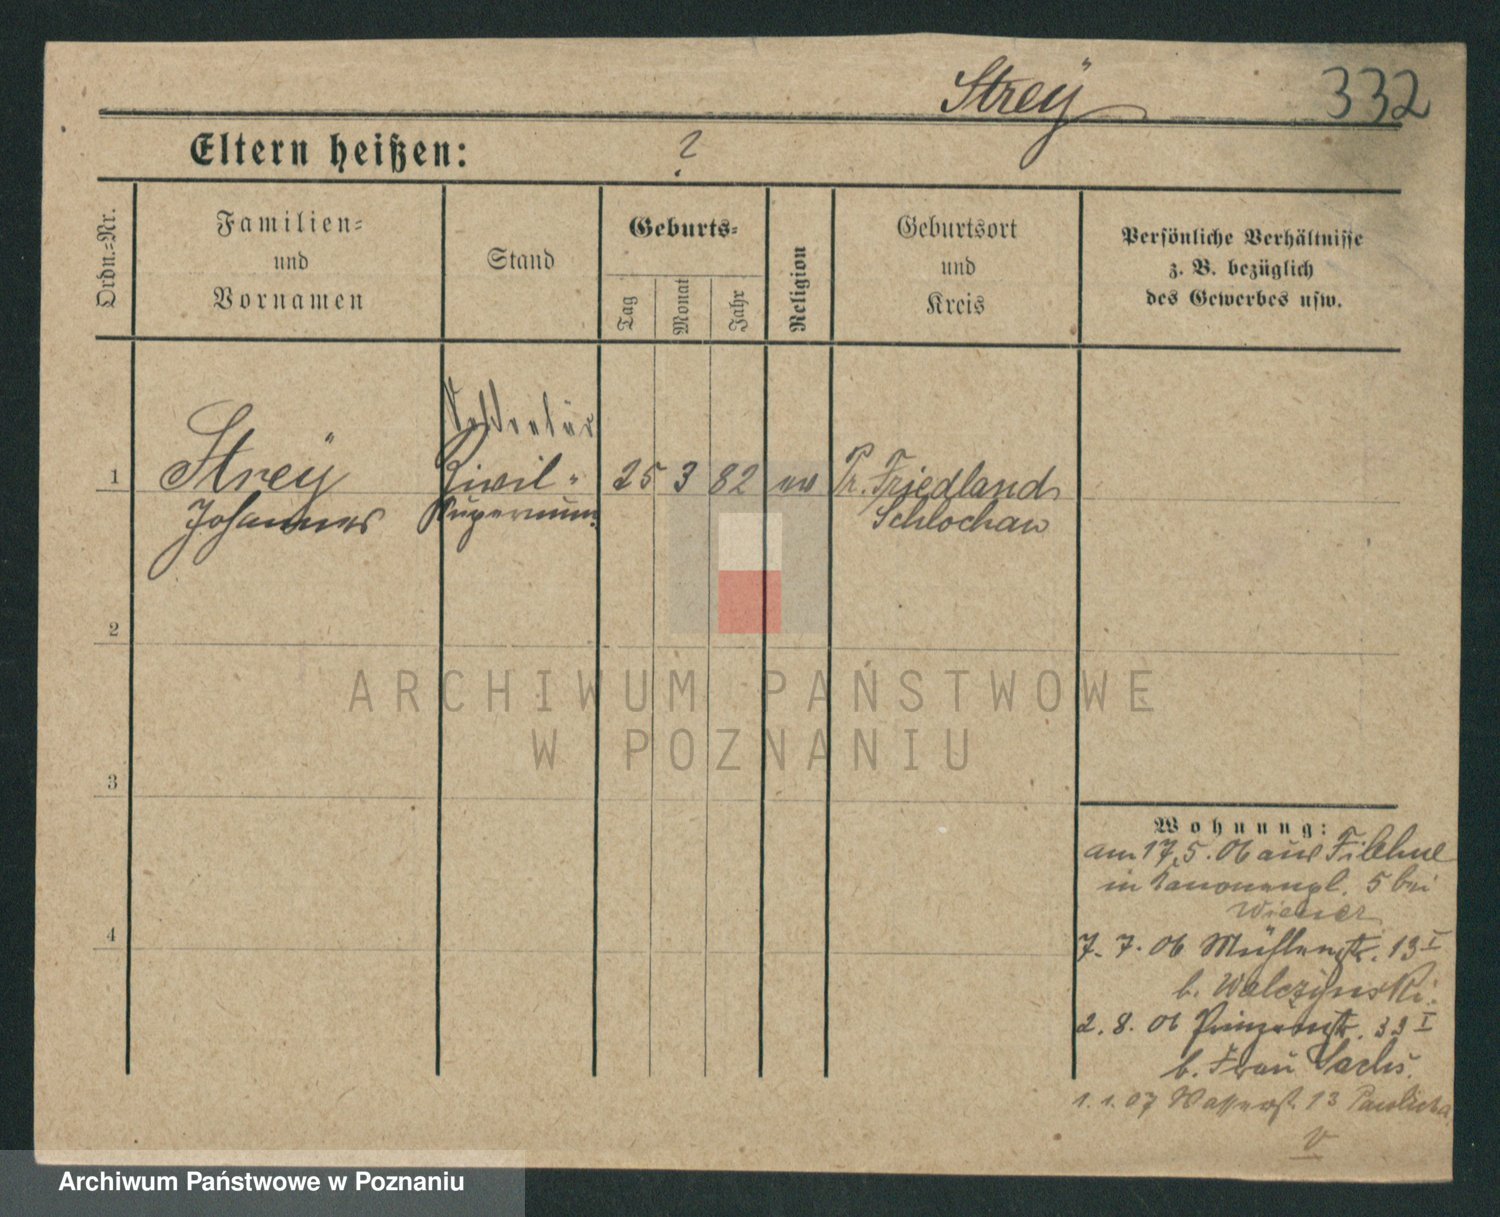 Streÿ 332
Eltern heißen: ?
Ordn.=Nr.
Familien=
und
Vornamen
Stand
Geburts=
Tag
Monat
Jahr
Religion
Geburtsort
und
Kreis
Persönliche Verhältnisse
z. B. bezüglich
des Gewerbes usw.
1 Streÿ Zivil= 25 3 82 ev Pr. Friedland
Johannes Supernum. Schlochau
2
3
4
Wohnung:
am 17.5.06 aus Filehne
in Kanonenpl. 5 bei
Wiener
7. 7. 06 Mühlenstr. 13 I
b. Walczynski.
2. 8. 06 Prinzenstr. 39 I
b. Frau Sachs.
1. 1. 07 13
ARCHIWUM PAŃSTWOWE
W POZNANIU
Archiwum Państwowe w Poznaniu